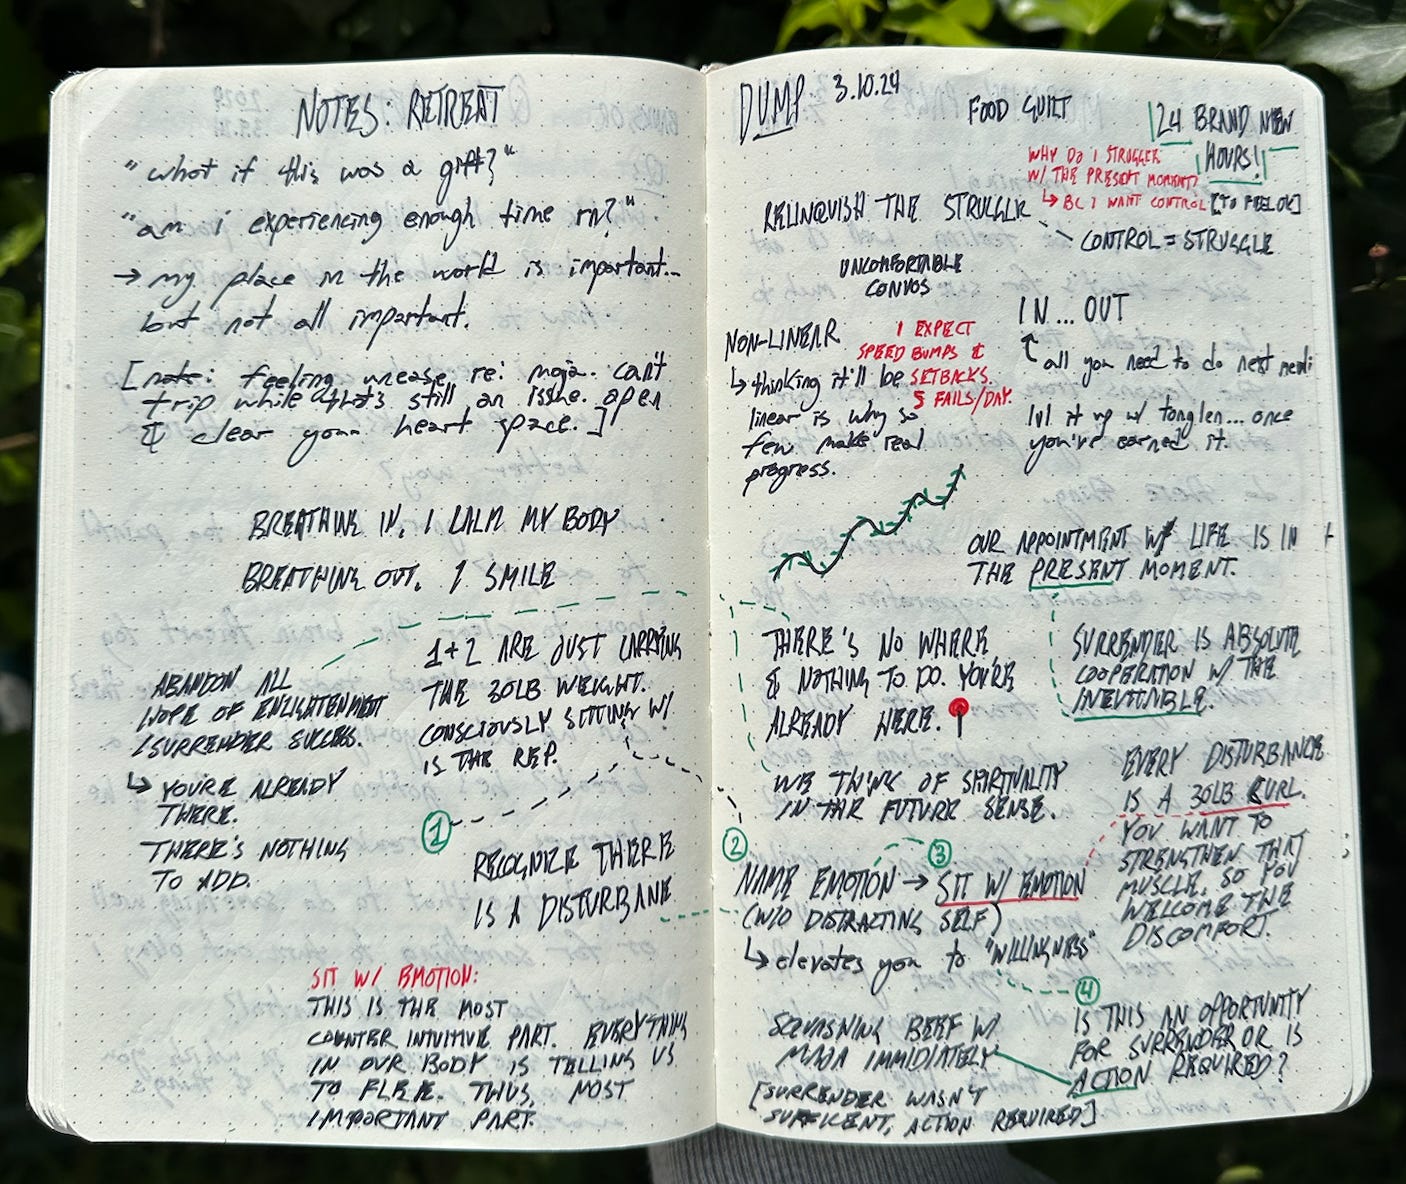 NOTES: RETREAT
"what if this was a gift?"
"am i experiencing enough time rn?"
→ my place in the world is important...
but not all important.
[note: feeling re: moja. can't
trip while that's still an issue. open
& clear your heart space.]
BREATHING IN, I CALM MY BODY
BREATHING OUT, I SMILE
1+2 ARE JUST CARRYING
THE 30LB WEIGHT.
CONSCIOUSLY SITTING W/
IS THE REP.
ABANDON ALL
HOPE OF ENLIGHTENMENT
/SURRENDER SUCCESS.
↳ YOU'RE ALREADY
THERE.
THERE'S NOTHING
TO ADD.
1
RECOGNIZE THERE
IS A DISTURBANE
SIT W/ EMOTION:
THIS IS THE MOST
COUNTER INTUITIVE PART. EVERYTHING
IN OUR BODY IS TELLING US
TO FLEE. THUS, MOST
IMPORTANT PART.
DUMP 3.10.24
FOOD GUILT
24 BRAND NEW
HOURS!!
WHY DO I STRUGGLE
W/ THE PRESENT MOMENT?
↳ BC I WANT CONTROL [TO FEEL OK]
RELINQUISH THE STRUGGLE
CONTROL = STRUGGLE
UNCOMFORTABLE
CONVOS
IN... OUT
all you need to do next medi
lvl it up w/ tonglen... once
you've earned it.
NON-LINEAR
↳ thinking it'll be
linear is why so
few make real
progress.
I EXPECT
SPEED BUMPS &
SETBACKS.
5 FAILS/DAY.
OUR APPOINTMENT W/ LIFE IS IN
THE PRESENT MOMENT.
THERE'S NO WHERE
& NOTHING TO DO. YOU'RE
ALREADY HERE.
SURRENDER IS ABSOLUTE
COOPERATION W/ THE
INEVITABLE.
WE THINK OF SPIRTUALITY
IN THE FUTURE SENSE.
EVERY DISTURBANCE
IS A 30LB CURL.
YOU WANT TO
STRENGTHEN THAT
MUSCLE. SO YOU
WELCOME THE
DISCOMFORT.
2
3
NAME EMOTION → SIT W/ EMOTION
(W/O DISTRACTING SELF)
↳ elevates you to "WILLINGNESS"
4
IS THIS AN OPPORTUNITY
FOR SURRENDER OR IS
ACTION REQUIRED?
SQUASHING BEEF W/
MAJA IMMIDIATELY
[SURRENDER WASN'T
SUFFICENT, ACTION REQUIRED]